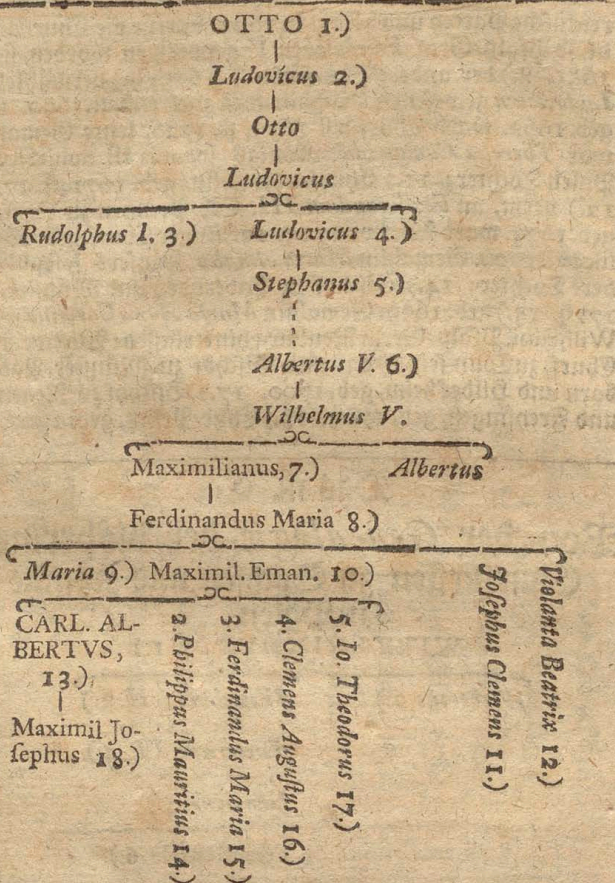 OTTO 1.)
Ludovicus 2.)
Otto
Ludovicus
Rudolphus I. 3.) Ludovicus 4.)
Stephanus 5.)
Albertus V. 6.)
Wilhelmus V.
Maximilianus, 7.) Albertus
Ferdinandus Maria 8.)
Maria 9.) Maximil. Eman. 10.)
Joſephus Clemens 11.)
Violanta Beatrix 12.)
CARL. AL-
BERTVS,
13.)
Maximil Jo-
ſephus 18.)
2. Philippus Mauritius 14.)
3. Ferdinandus Maria 15.)
4. Clemens Auguſtus 16.)
5. Io. Theodorus 17.)